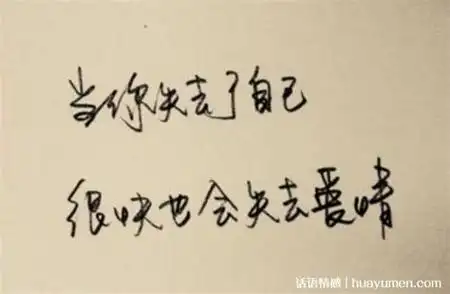 当你失去了自己
很快也会失去爱情
话语情感 | huayumen.com